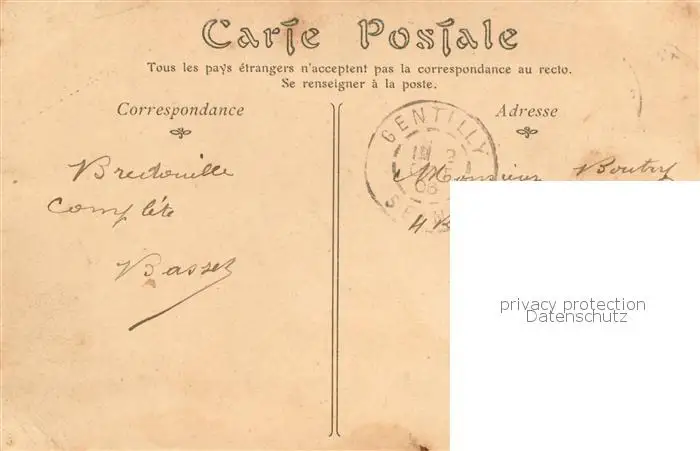 Carte Postale
Tous les pays étrangers n'acceptent pas la correspondance au recto.
Se renseigner à la poste.
Correspondance
Adresse
GENTILLY
06
Bredouille
Complète
Basset
Monsieur Boutry
4 B
privacy protection
Datenschutz